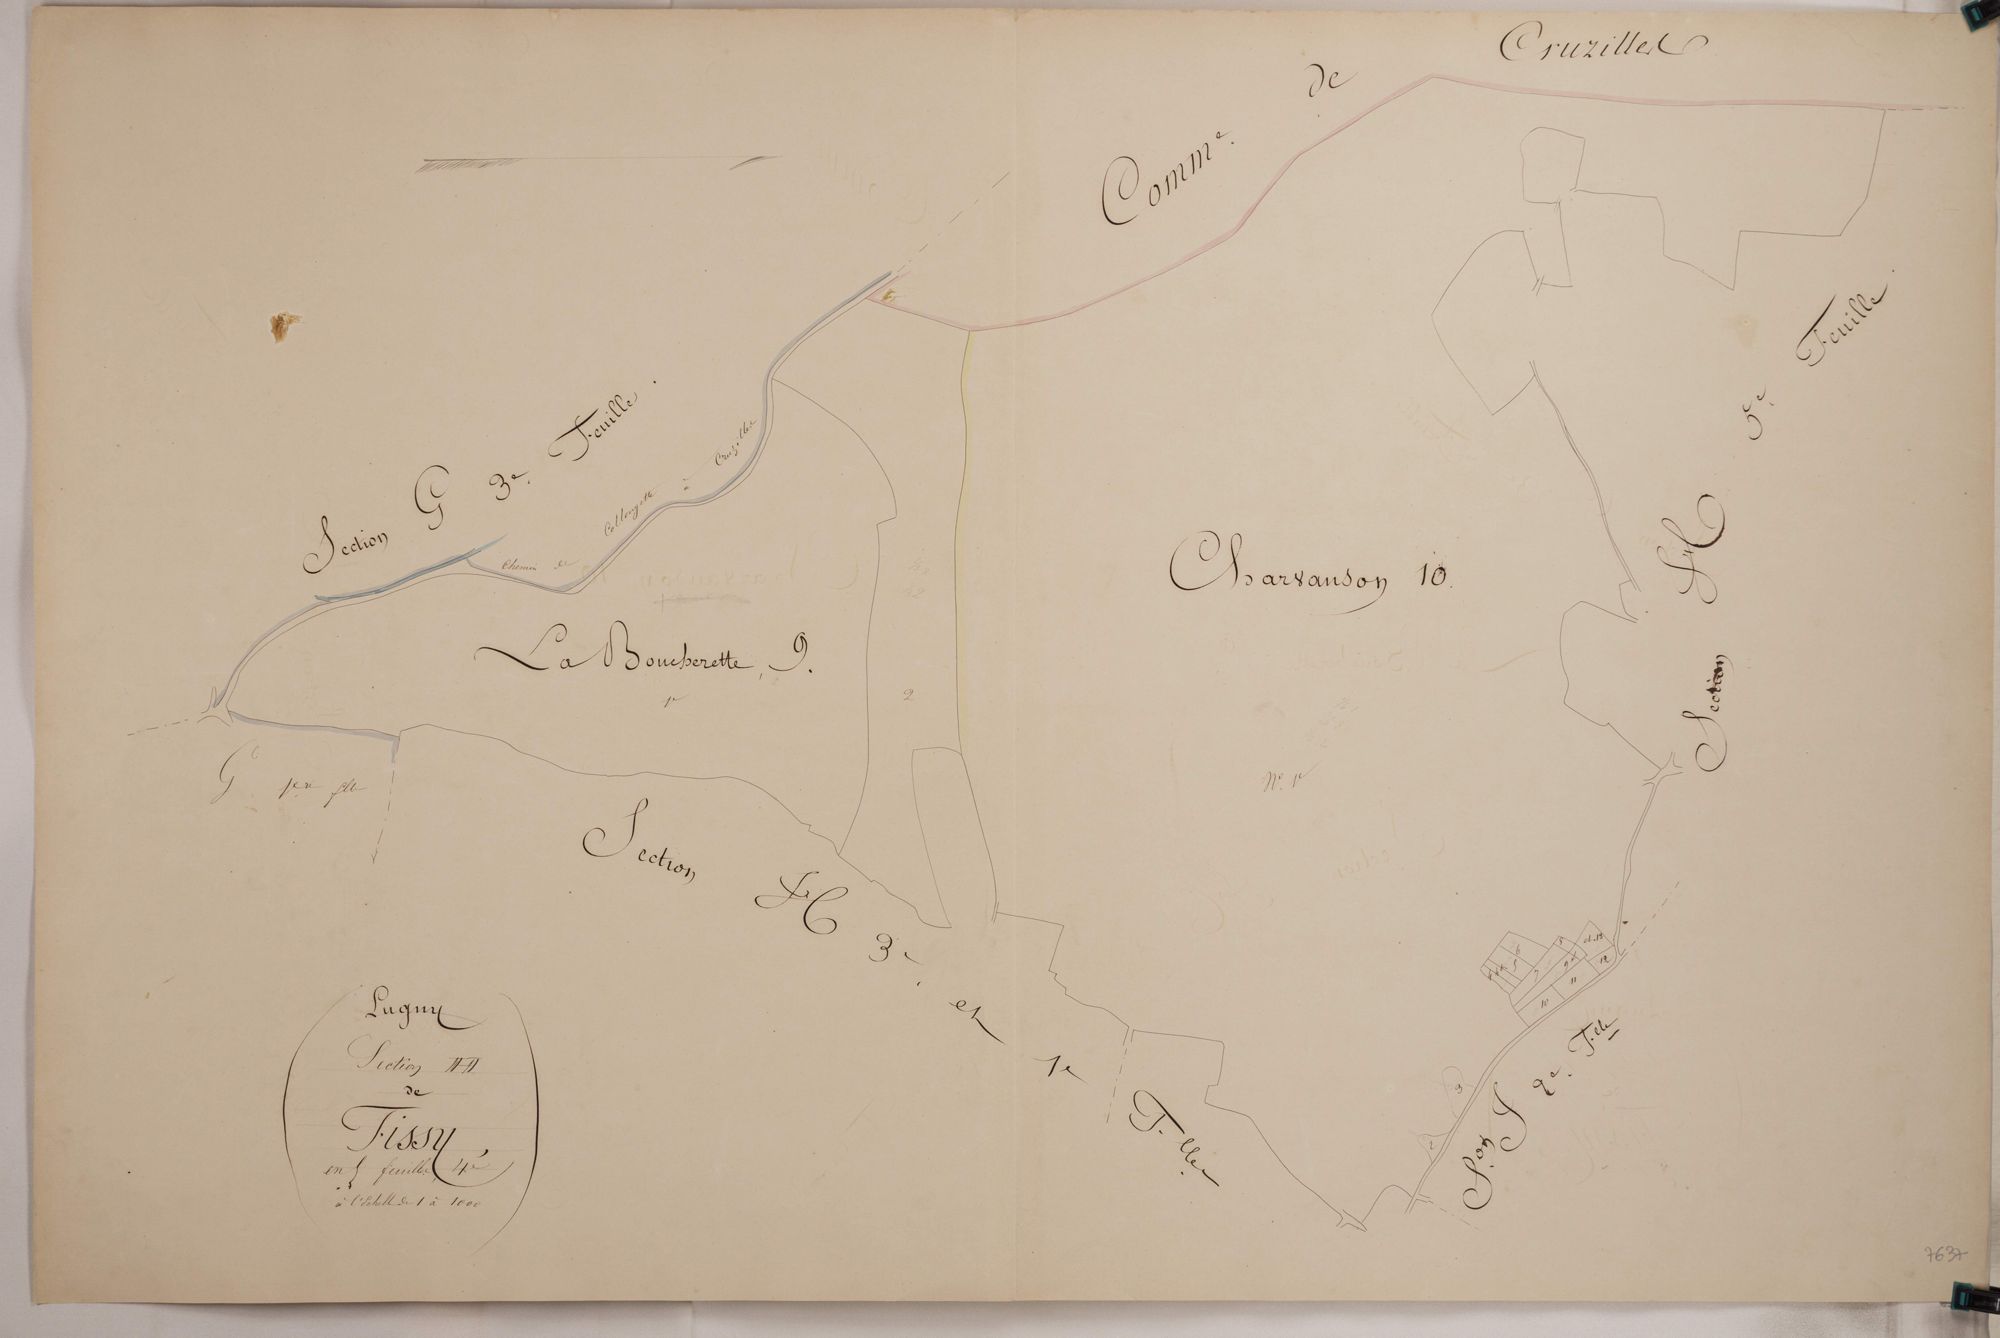 Comm.e de Cruzilles
Section G 3e. Feuille.
Chemin de Collongette à Cruzilles
La Boucherette, 9.
1e
2
Charvanson 10.
No. 1e
Section H 5e. Feuille
G 1ere flle
Section H 3e. et 1e F.lle.
S.on I 2e. F.lle
5
6
7
8
9
10
11
12
3
2
Lugny
Section H
de
Fissy
en 5 feuilles 4e
à l'échelle de 1 à 1000
7637